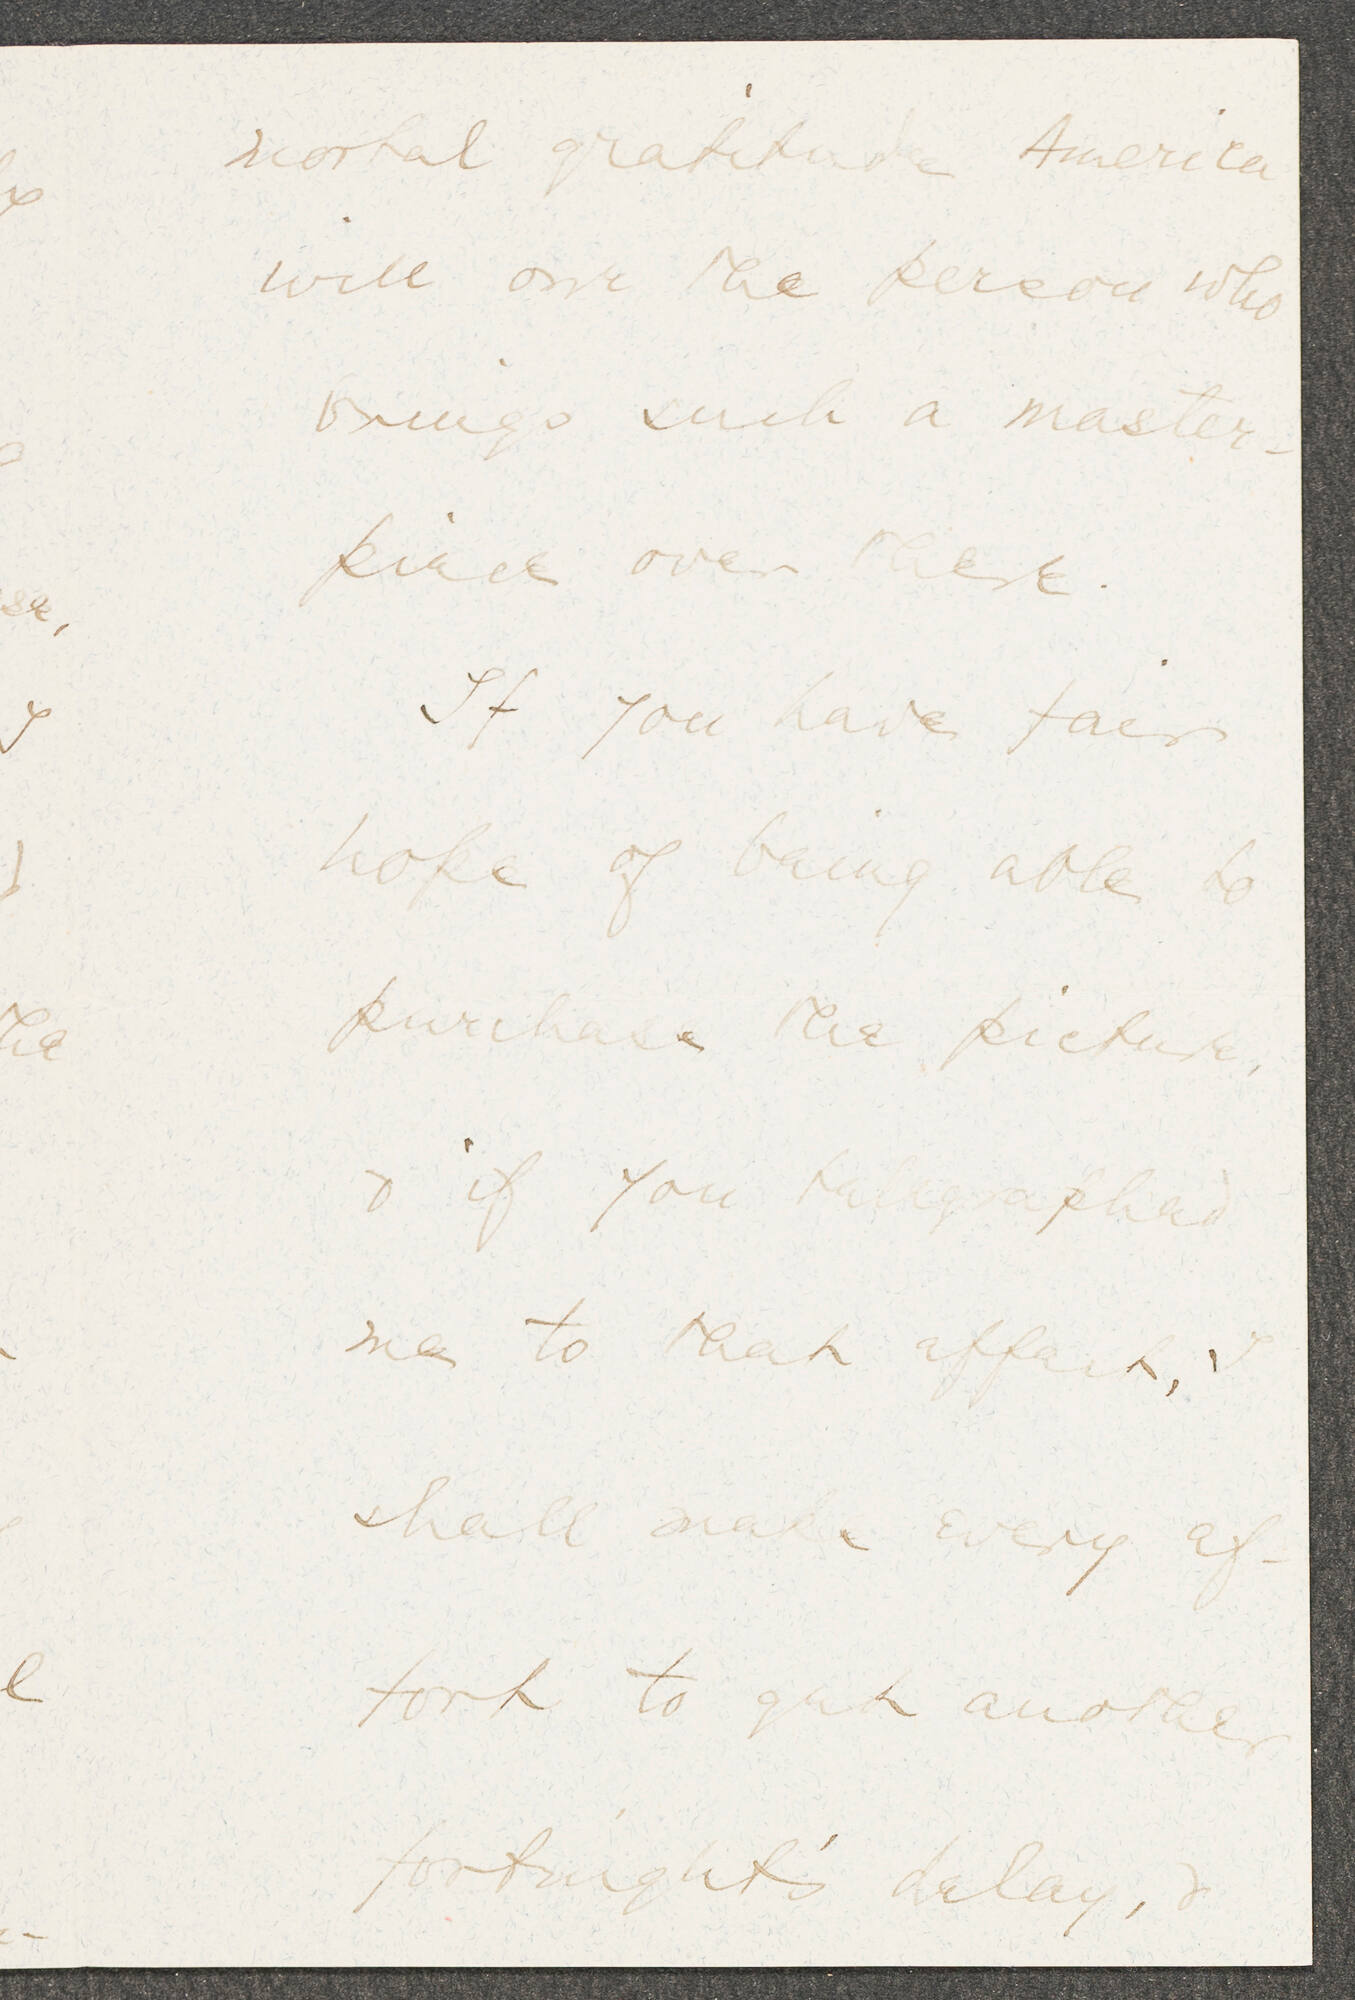 mortal gratitude America
will owe the person who
brings such a master-
piece over there.
If you have fair
hope of being able to
purchase the picture,
& if you telegraphed
me to that effect, I
shall make every ef-
fort to get another
fortnight's delay, &